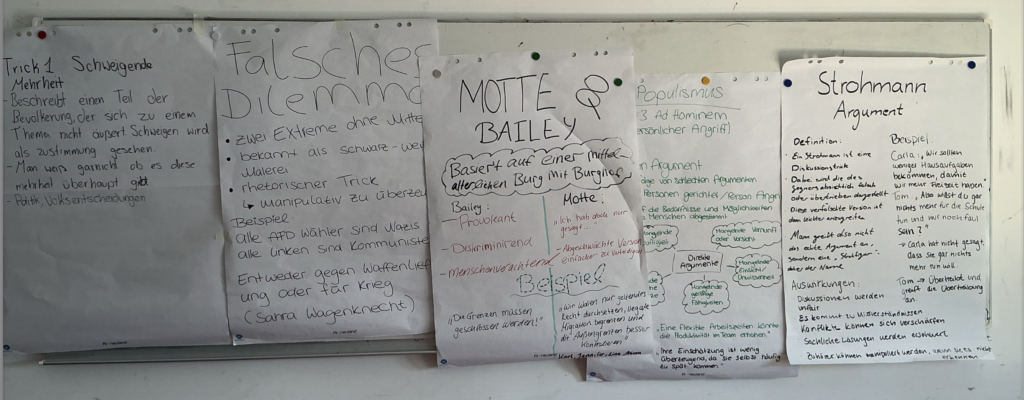 Trick 1 Schweigende
Mehrheit
- Beschreibt einen Teil der
Bevölkerung, der sich zu einem
Thema nicht äußert. Schweigen wird
als zustimmung gesehen.
- Man weis garnicht ob es diese
mehrheit überhaupt gibt
- Politik, Volksentscheidungen
Falscher
Dilemma
• zwei Extreme ohne Mitte
• bekannt als schwarz-wei
Malerei
• rhetorischer Trick
↳ manipulativ zu überzeu
Beispiel:
alle AfD Wähler sind Nazis
alle Linken sind Kommuniste
Entweder gegen Waffenlief
ung oder für Krieg
(Sahra Wagenknecht)
MOTTE
BAILEY
Basiert auf einer mittel-
alterlichen Burg mit Burghof
Bailey:
- Provokant
- Diskriminierend
- Menschenverachtend
Motte:
- "Ich hab doch nur
gesagt...
- Abgeschwächte Version
einfacher zu verteidigen
Beispiel
"Die Grenzen müssen
geschlossen werden!"
"Wir wollen nur geltendes
Recht durchsetzen, illegale
Migration begrenzen und
die Außengrenzen besser
kontrollieren"
Populismus
3 Ad Hominem
ersönlicher Angriff)
n Argument
Personen gerichtet/Person Angri
f die Bedürfnisse und Möglichkeiten
Menschen abgestimmt
Mangelnde Vernunft
oder Vorsicht
Direkte
Argumente
Mangelnde
Einsicht/
Unwissenheit
Mangelnde
geistige
Fähigkeiten
"Eine flexible Arbeitszeiten könnte
die Produktivität im Team erhöhen."
"Ihre Einschätzung ist wenig
überzeugend, da Sie selbst häufig
zu spät kommen."
Strohmann
Argument
Definition:
Ein Strohmann ist eine
Diskussionstaktik
Dabei wird die des
Gegners absichtlich falsch
oder übertrieben dargestellt
Diese verfälschte Version ist
dann leichter anzugreifen
Man greift also nicht
das echte Argument an,
sondern eine "Strohfigur":
daher der Name
Beispiel:
Carla: "Wir sollten
weniger Hausaufgaben
bekommen, damit
wir mehr Freizeit haben."
Tom: "Also willst du gar
nichts mehr für die Schule
tun und nur noch faul
sein?"
→ Carla hat nicht gesagt,
dass sie gar nichts
mehr tun will.
Tom → Übertreibt und
greift die Übertreibung
an.
Auswirkungen:
Diskussionen werden
unfair
Es kommt zu Missverständnissen
Konflikte können sich verschärfen
Sachliche Lösungen werden erschwert
Zuhörer können manipuliert werden, wenn sie es nicht
erkennen